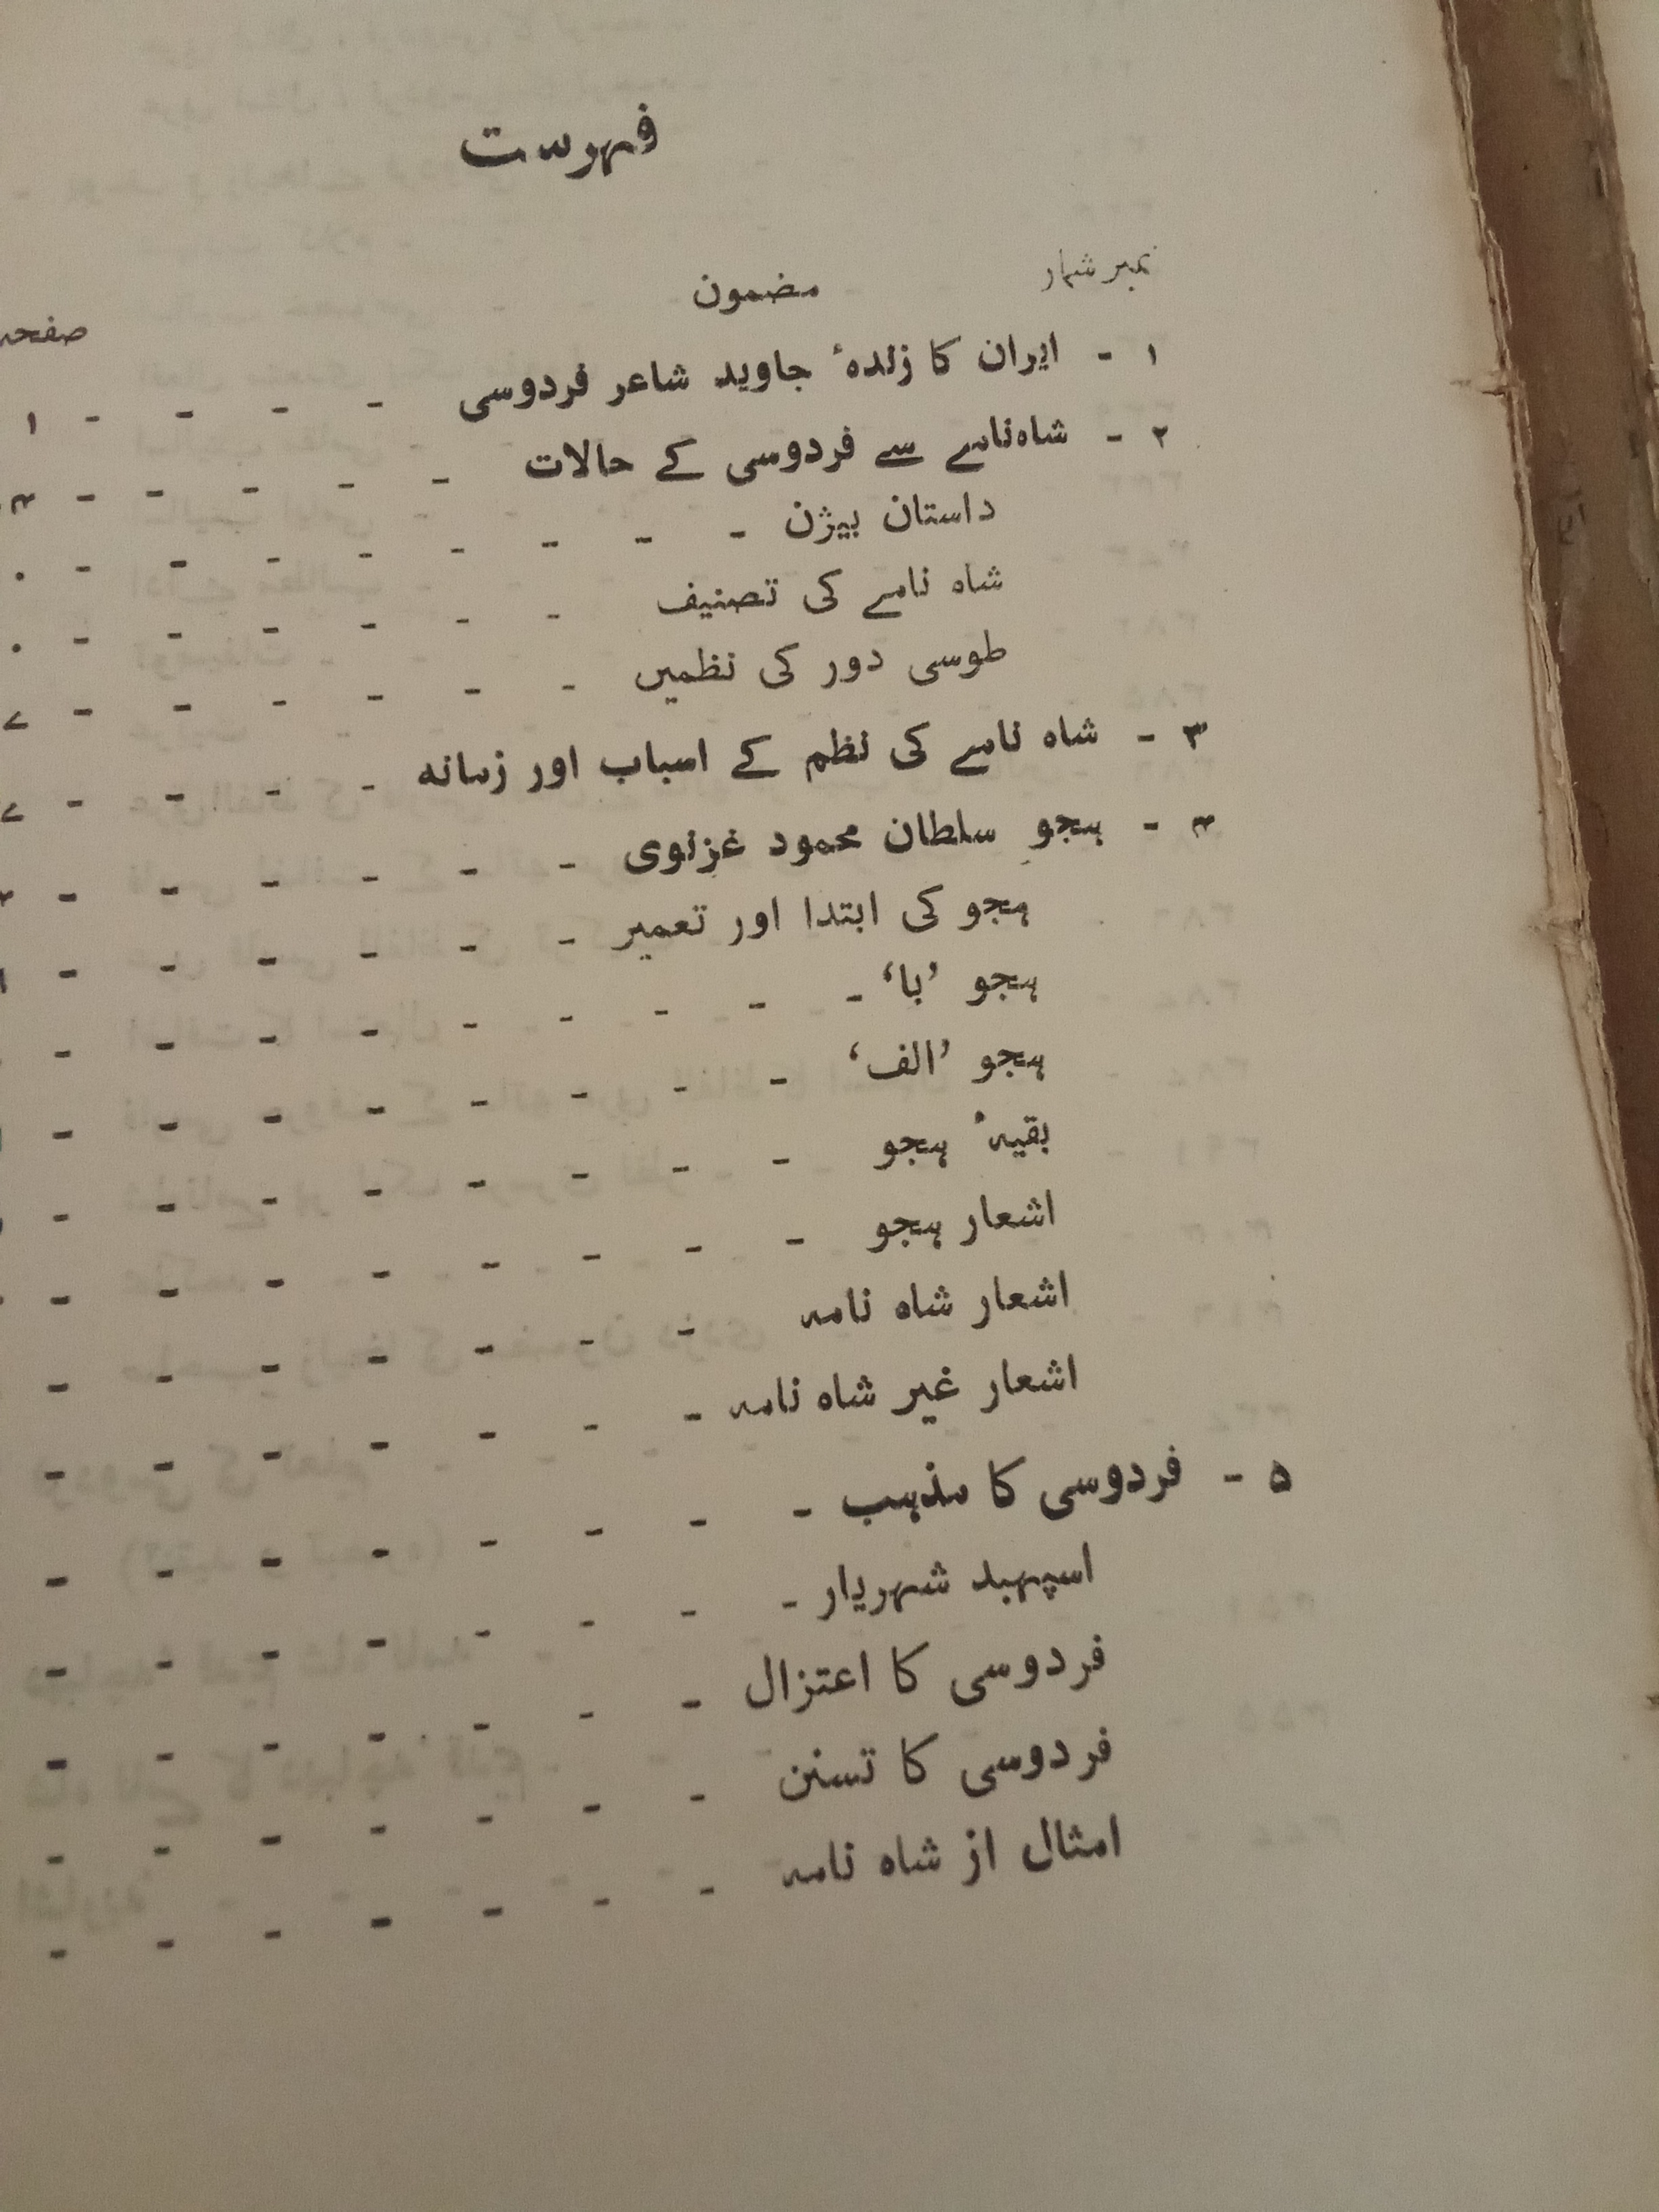 فہرست
نمبر شمار مضمون صفحہ
۱ - ایران کا زندہٴ جاوید شاعر فردوسی - - - - ۱
۲ - شاہ‌نامے سے فردوسی کے حالات - - - - -
داستان بیژن - - - - - - - -
شاہ نامے کی تصنیف - - - - - -
طوسی دور کی نظمیں - - - - - -
۳ - شاہ نامے کی نظم کے اسباب اور زمانہ - - - -
۴ - ہجو سلطان محمود غزنوی - - - - - -
ہجو کی ابتدا اور تعمیر - - - - - -
ہجو ’با‘ - - - - - - - - -
ہجو ’الف‘ - - - - - - - -
بقیہٴ ہجو - - - - - - - -
اشعار ہجو - - - - - - - -
اشعار شاہ نامہ - - - - - - -
اشعار غیر شاہ نامہ - - - - - - -
۵ - فردوسی کا مذہب - - - - - - - -
اسپہبد شہریار - - - - - - - -
فردوسی کا اعتزال - - - - - - -
فردوسی کا تسنن - - - - - - -
امثال از شاہ نامہ - - - - - - -